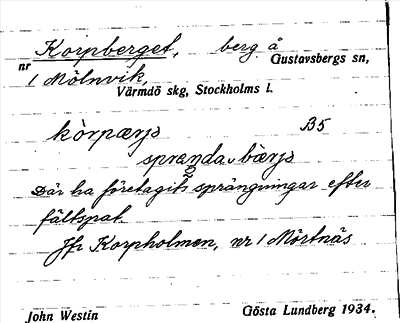 Korpberget, berg å Gustavsbergs sn,
nr 1 Mölnvik,
Värmdö skg, Stockholms l.
kòrpærjs B5
sprænda bærjs
2
Där ha företagits sprängningar efter
fältspat.
Jfr Korpholmen, nr 1 Mörtnäs
John Westin Gösta Lundberg 1934.